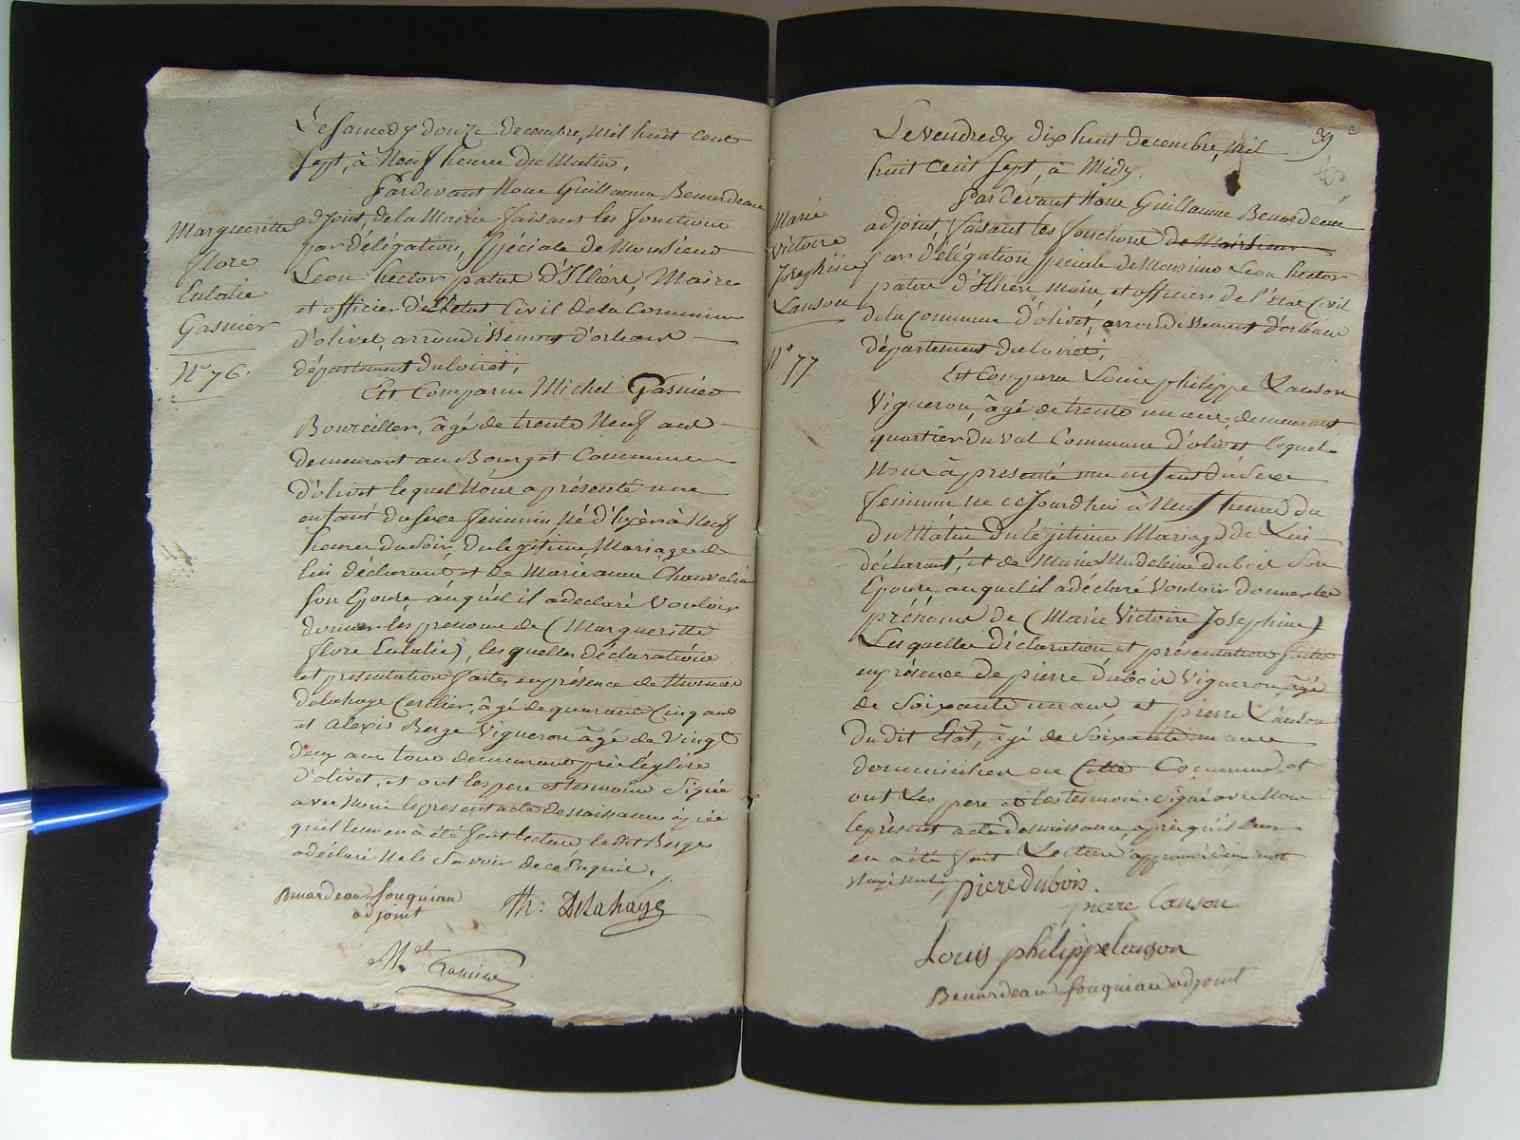 Le Samedy douze decembre, mil huit cent
Sept, à Neuf heures du Matin,
Pardevant Nous Guillaume Benardeau
adjoint de la Mairie faisant les fonctions
par délégation, Spéciale de Monsieur
Leon hector patas D'Illiers, Maire
et officier d'l'Etat Civil de la Commune
d'olivet, arrondissement d'orleans
département du loiret,
Est Comparu Michel Gasnier
âgé de trente Neuf ans
demeurant au Bourg et Commune
d'olivet lequel Nous a présenté une
enfant du sexe féminin Né d'hyer à Neuf
heures du soir, du legitime Mariage de
lui déclarant et de Marie anne Chauvelin
son Epouse, auquel il a declaré Vouloir
donner les prenoms de (Margueritte
flore Eulalie), les quelles déclarations
et presentation faites en présence de
Delahaye Cerclier, âgé de quarante Cinq ans
et Alexis Berge Vigneron âgé de Vingt
Deux ans tous demeurant près l'église
d'olivet, et ont les pere et temoins Signé
avec Nous le present acte de Naissance après
qu'il leur en a été fait lecture, le dit Berge
a déclaré Ne le Savoir de ce enquis.
Benardeau fouquiau
adjoint
Th: Delahaye
M.el Gasnier
Margueritte
flore
Eulalie
Gasnier
N.o 76.
39
Le Vendredy dix huit decembre, mil
huit cent Sept, à Midy.
Pardevant Nous Guillaume Benardeau
adjoint, faisant les fonctions de Monsieur
par délégation speciale de Monsieur Leon hector
patas d'Illiers maire et officier de l'état Civil
de la Commune d'olivet, arrondissement d'orléans
département du loiret,
Est Comparu Louis philippe Lanson
Vigneron, âgé de trente un ans, demeurant
quartier du Val Commune d'olivet lequel
Nous à presenté une enfant du Sexe
feminin ne cejourd'hui à Neuf heures du
du Matin du légitime Mariage de Lui
déclarant, et de Marie Madeleine Dubois Son
Epouse auquel il a déclaré Vouloir donner les
prénoms de (Marie Victoire Josephine)
Lesquelles déclaration et présentation faites
en présence de pierre Dubois Vigneron, âgé
de Soixante un ans, et pierre Lanson
Dudit Etat, âgé de Soixante
domicilier en Cette Commune, et
ont Les pere et les temoins signé avec Nous
le présent acte de naissance, après qu'il leur
en a été fait Lecture approuvé
piere dubois.
pierre Lanson
Louis philippe lanson
Benardeau fouquiau adjoint
Marie
Victoire
Josephine
Lanson
N.o 77